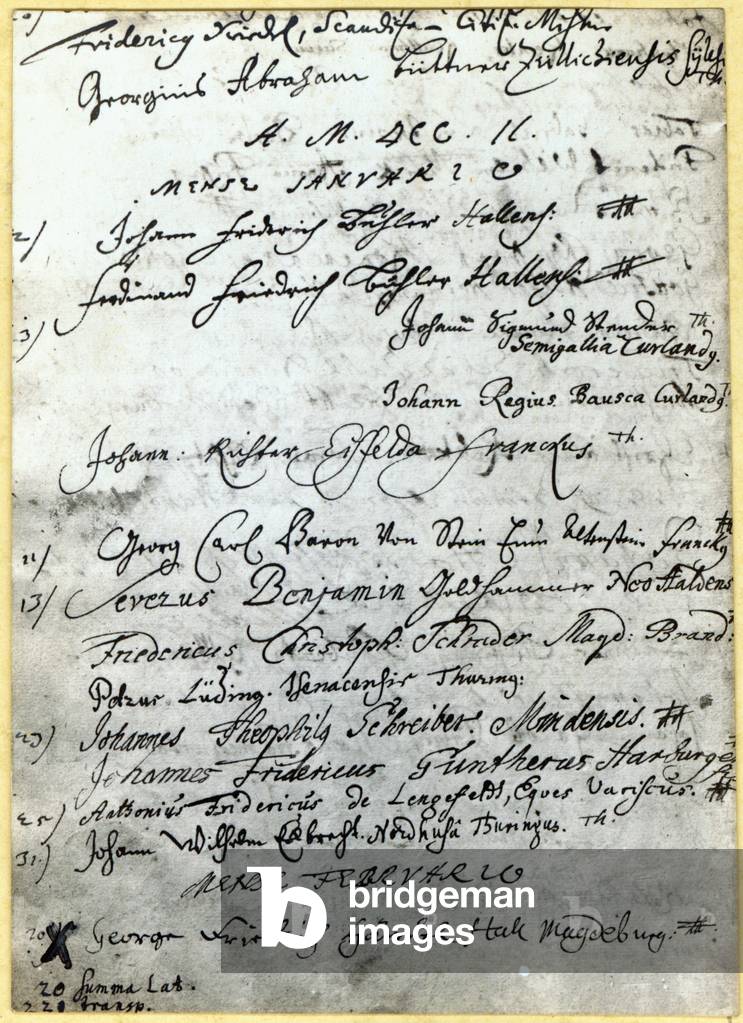 Fridericq
Georgius Abraham Büttner Züllichiensis
A. M. DCC. II.
MENSE JANVARIO
2) Johann Friderich Bühler Hallens:
Ferdinand Friedrich Bühler Hallens:
3) Johann Sigmund Stender Th.
Semigallia Curlandq.
Johann Regius Bausca Curlandq Th.
Johann: Richter Eisfelda Franckus Th.
11) Georg Carl Baron Von Stein Francky
13) Severus Benjamin Goldhammer Neo Haldens
Fridericus Christoph: Schrader Magd: Brand:
Petrus Lüding. Isenacensis Thuring:
23) Johannes Theophilq Schreiber. Mindensis.
Johannes Fridericus Guntherus Harburg
25) Anthonius Fridericus de Lengefeldt, Eques Variscus.
31) Johann Wilhelm Northusâ Thuringus. Th.
MENSE FEBRVARIO
20 X George Hall Magdeburg:
20 Summa Lat.
220 transp.
b bridgeman images